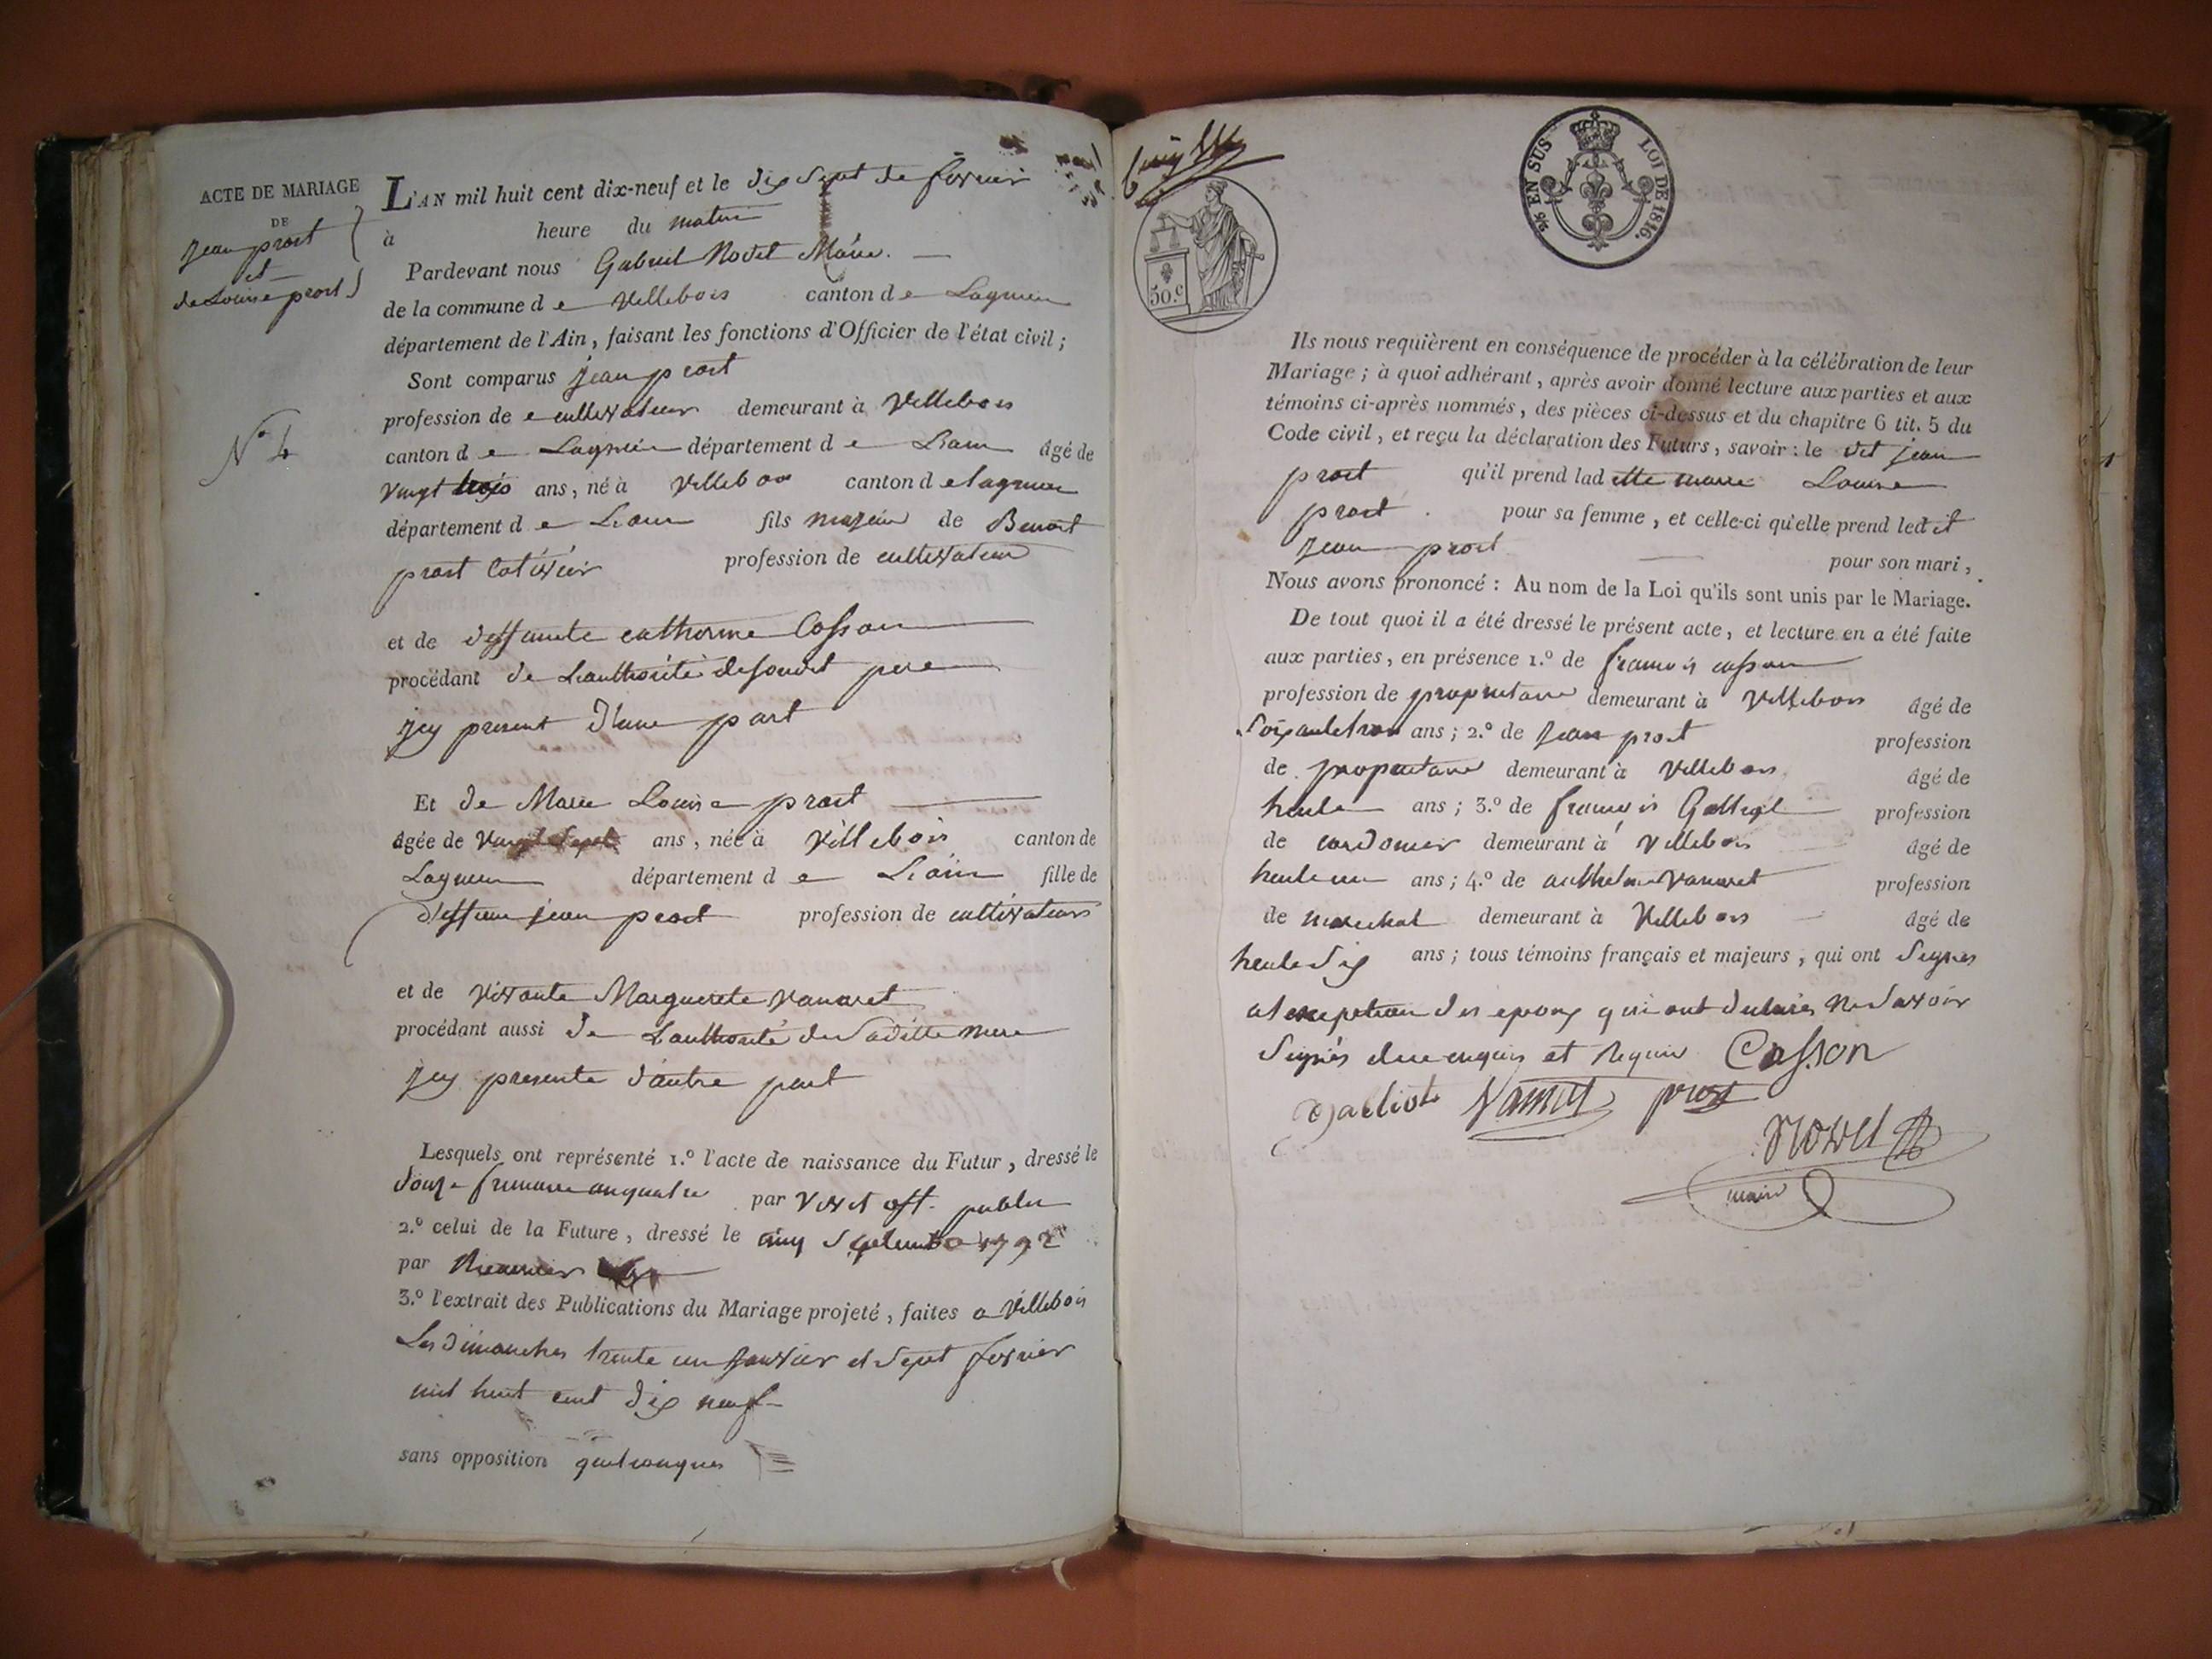 ACTE DE MARIAGE
DE
jean prost
et
de Louise prost
N.º 4
L'AN mil huit cent dix-neuf et le dix sept de fevrier
à heure du matin
Pardevant nous Gabriel Novet Maire.
de la commune d e villebois canton d e Lagnieu
département de l'Ain, faisant les fonctions d'Officier de l'état civil ;
Sont comparus jean prost
profession de cultivateur demeurant à villebois
canton d e Lagnieu département d e Lain âgé de
vingt trois ans, né à villebois canton d e lagnieu
département d e Lain fils majeur de Benoit
prost profession de cultivateur
et de deffunte catherine Casson
procédant de Lauthorité de son dit pere
jcy present d'une part
Et de Marie Louise prost
âgée de vingt sept ans, née à villebois canton de
Lagnieu département d e Lain fille de
deffun jean prost profession de cultivateur
et de vivante Marguerete vanaret
procédant aussi de Lauthorité de Saditte mere
jcy presente d'autre part
Lesquels ont représenté 1.º l'acte de naissance du Futur, dressé le
douze frimaire an quatre par off. public
2.º celui de la Future, dressé le cinq Septembre 1792
par
3.º l'extrait des Publications du Mariage projeté, faites a villebois
Les dimanches trente un janvier et Sept fevrier
mil huit cent dix neuf
sans opposition quelconques
50.c
2/6 EN SUS LOI DE 1816.
Ils nous requièrent en conséquence de procéder à la célébration de leur
Mariage ; à quoi adhérant, après avoir donné lecture aux parties et aux
témoins ci-après nommés, des pièces ci-dessus et du chapitre 6 tit. 5 du
Code civil, et reçu la déclaration des Futurs, savoir : le dit jean
prost qu'il prend lad itte marie Louise
prost pour sa femme, et celle-ci qu'elle prend led it
jean prost pour son mari,
Nous avons prononcé : Au nom de la Loi qu'ils sont unis par le Mariage.
De tout quoi il a été dressé le présent acte, et lecture en a été faite
aux parties, en présence 1.º de francois casson
profession de proprietaire demeurant à villebois âgé de
Soixante trois ans ; 2.º de jean prost profession
de proprietaire demeurant à villebois âgé de
trente ans ; 3.º de francois profession
de cordonier demeurant à villebois âgé de
trente un ans ; 4.º de anthelme vanaret profession
de marechal demeurant à villebois âgé de
trente dix ans ; tous témoins français et majeurs, qui ont Signés
a lexception des epoux qui ont declarés ne Savoir
Signés de ce enquis et requis Casson
Galliot Vanaret prost
Novet
maire